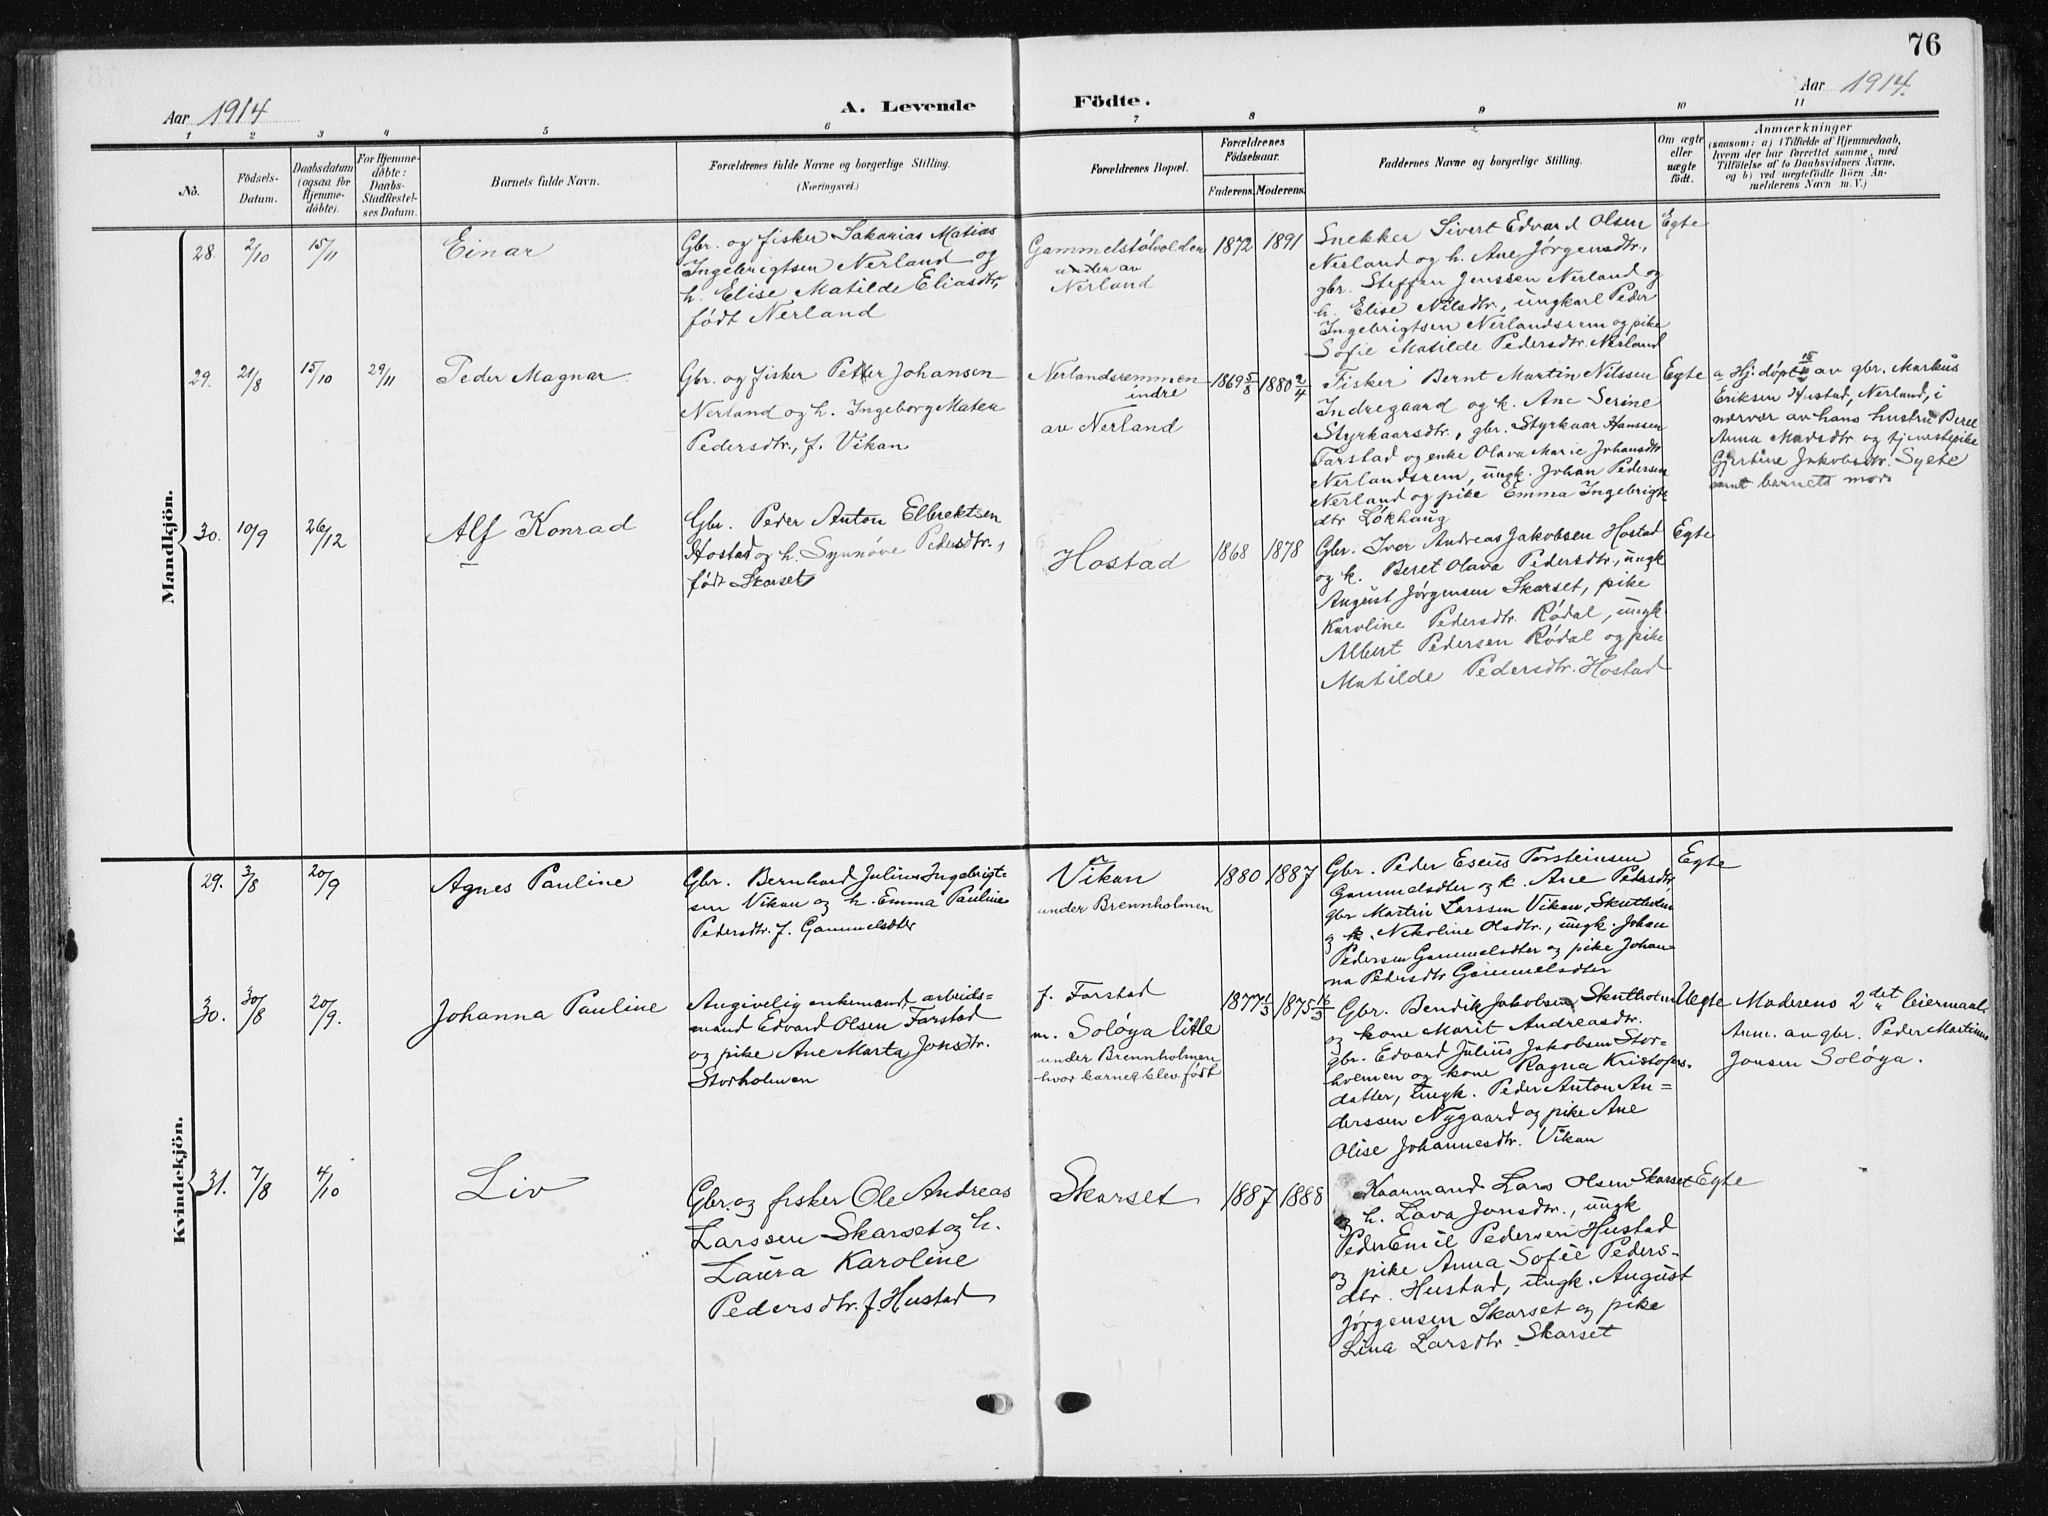 76
Aar 1914
A. Levende Födte.
Aar 1914.
1 2 3 4 5 6 7 8 9 10 11
No.
Födsels-
Datum.
Daabsdatum
(ogsaa for
Hjemme-
døbte).
For Hjemme-
döbte:
Daabs-
Stadfæstel-
ses Datum.
Barnets fulde Navn.
Forældrenes fulde Navne og borgerlige Stilling.
(Næringsvei.)
Forældrenes Bopæl.
Forældrenes
Födselsaar.
Faderens. Moderens.
Faddernes Navne og borgerlige Stilling.
Om ægte
eller
uægte
födt.
Anmærkninger
(saasom: a) i Tilfælde af Hjemmedaab,
hvem der har forrettet samme, med
Tilföielse af to Daabsvidners Navne,
og b) ved uægtefödte Börn An-
melderens Navn m. V.)
Mandkjön.
28. 2/10 15/11
Einar
Gbr. og fisker Sakarias Matias
Ingebrigtsen Nerland og
h. Elise Matilde Eliasdtr,
født Nerland
Gammelstølvolden
under av
Nerland
1872 1891
Snekker Sivert Edvard Olsen
Nerland og h. Ane Jørgensdtr,
gbr. Steffen Jenssen Nerland og
h. Elise Nilsdtr, ungkarl Peder
Ingebrigtsen Nerlandsrem og pike
Sofie Matilde Pedersdtr. Nerland
Egte
29. 21/8 15/10 29/11
Peder Magnar
Gbr. og fisker Petter Johansen
Nerland og h. Ingeborg Matea
Pedersdtr., f. Vikan
Nerlandsremmen
indre
av Nerland
1869 5/8 1880 2/4
Fisker Bernt Martin Nilssen
Indregaard og k. Ane Serine
Styrkaarsdtr., gbr. Styrkaar Hanssen
Farstad og enke Olava Marie Johansdtr
Nerlandsrem, ungk. Johan Pedersen
Nerland og pike Emma Ingebrigts-
dtr Løkhaug
Egte
a. Hj. døpt 15/10 av gbr. Markus
Eriksen Hustad, Nerland, i
nærvær av hans hustru Beret
Anna Madsdtr og tjenestepike
Gjertine Jakobsdtr. Sylte
samt barnets mor
30. 10/9 26/12
Alf Konrad
Gbr. Peder Anton Elbrektsen
Hostad og h. Synnøve Pedersdtr.,
født Skarset
Hostad
1868 1878
Gbr. Iver Andreas Jakobsen Hostad
og k. Beret Olava Pedersdtr, ungk
August Jørgensen Skarset, pike
Karoline Pedersdtr. Rødal, ungk.
Albert Pedersen Rødal og pike
Matilde Pedersdtr. Hostad
Egte
Kvindekjön.
29. 3/8 20/9
Agnes Pauline
Gbr. Bernhard Julius Ingebrigt-
sen Vikan og h. Emma Pauline
Pedersdtr. f. Gammelsæter
Vikan
under Brennholmen
1880 1887
Gbr. Peder Eseüs Torsteinsen
Gammelsæter og k. Ane Pedersdtr
gbr Martin Larssen Vikan, Skutholm
og k. Nekoline Olsdtr., ungk. Johan
Pedersen Gammelsæter og pike Johan-
na Pedersdtr Gammelsæter
Egte
30. 30/8 20/9.
Johanna Pauline
Angivelig enkemand arbeids-
mand Edvard Olsen Farstad
og pike Ane Marta Jonsdtr.
Storholmen
f. Farstad
m. Soløya lille
under Brennholmen
hvor barnet blev født
1877 1/3 1875 16/3
Gbr. Bendik Jakobsen Skutholm
og kone Marit Andreasdtr.
gbr. Edvard Julius Jakobsen Stor-
holmen og kone Ragna Kristofers-
datter, ungk. Peder Anton An-
derssen Nygaard og pike Ane
Olise Johannesdtr. Vikan
Uegte
Moderens 2det leiermaal.
Anm. av gbr. Peder Martinus
Jonsen Soløya.
31. 7/8 4/10
Liv
Gbr. og fisker Ole Andreas
Larssen Skarset og h.
Laura Karoline
Pedersdtr. f. Hustad
Skarset
1887 1888
Kaarmand Lars Olsen Skarset
og h. Lava Jonsdtr., ungk
Peder Emil Pedersen Hustad
og pike Anna Sofie Peders-
dtr. Hustad, ungk. August
Jørgensen Skarset og pike
Lina Larsdtr. Skarset
Egte